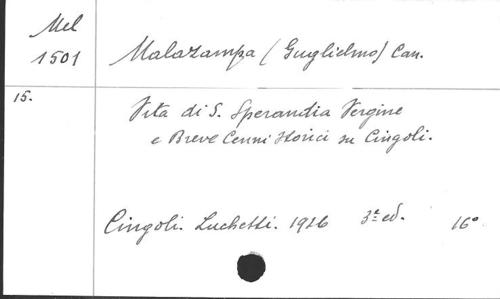 Mel
1501
Malazampa (Guglielmo) Can.
15.
Vita di S. Sperandia Vergine
e Breve Cenni Storici su Cingoli.
Cingoli. Luchetti. 1926 3ª ed. 16º